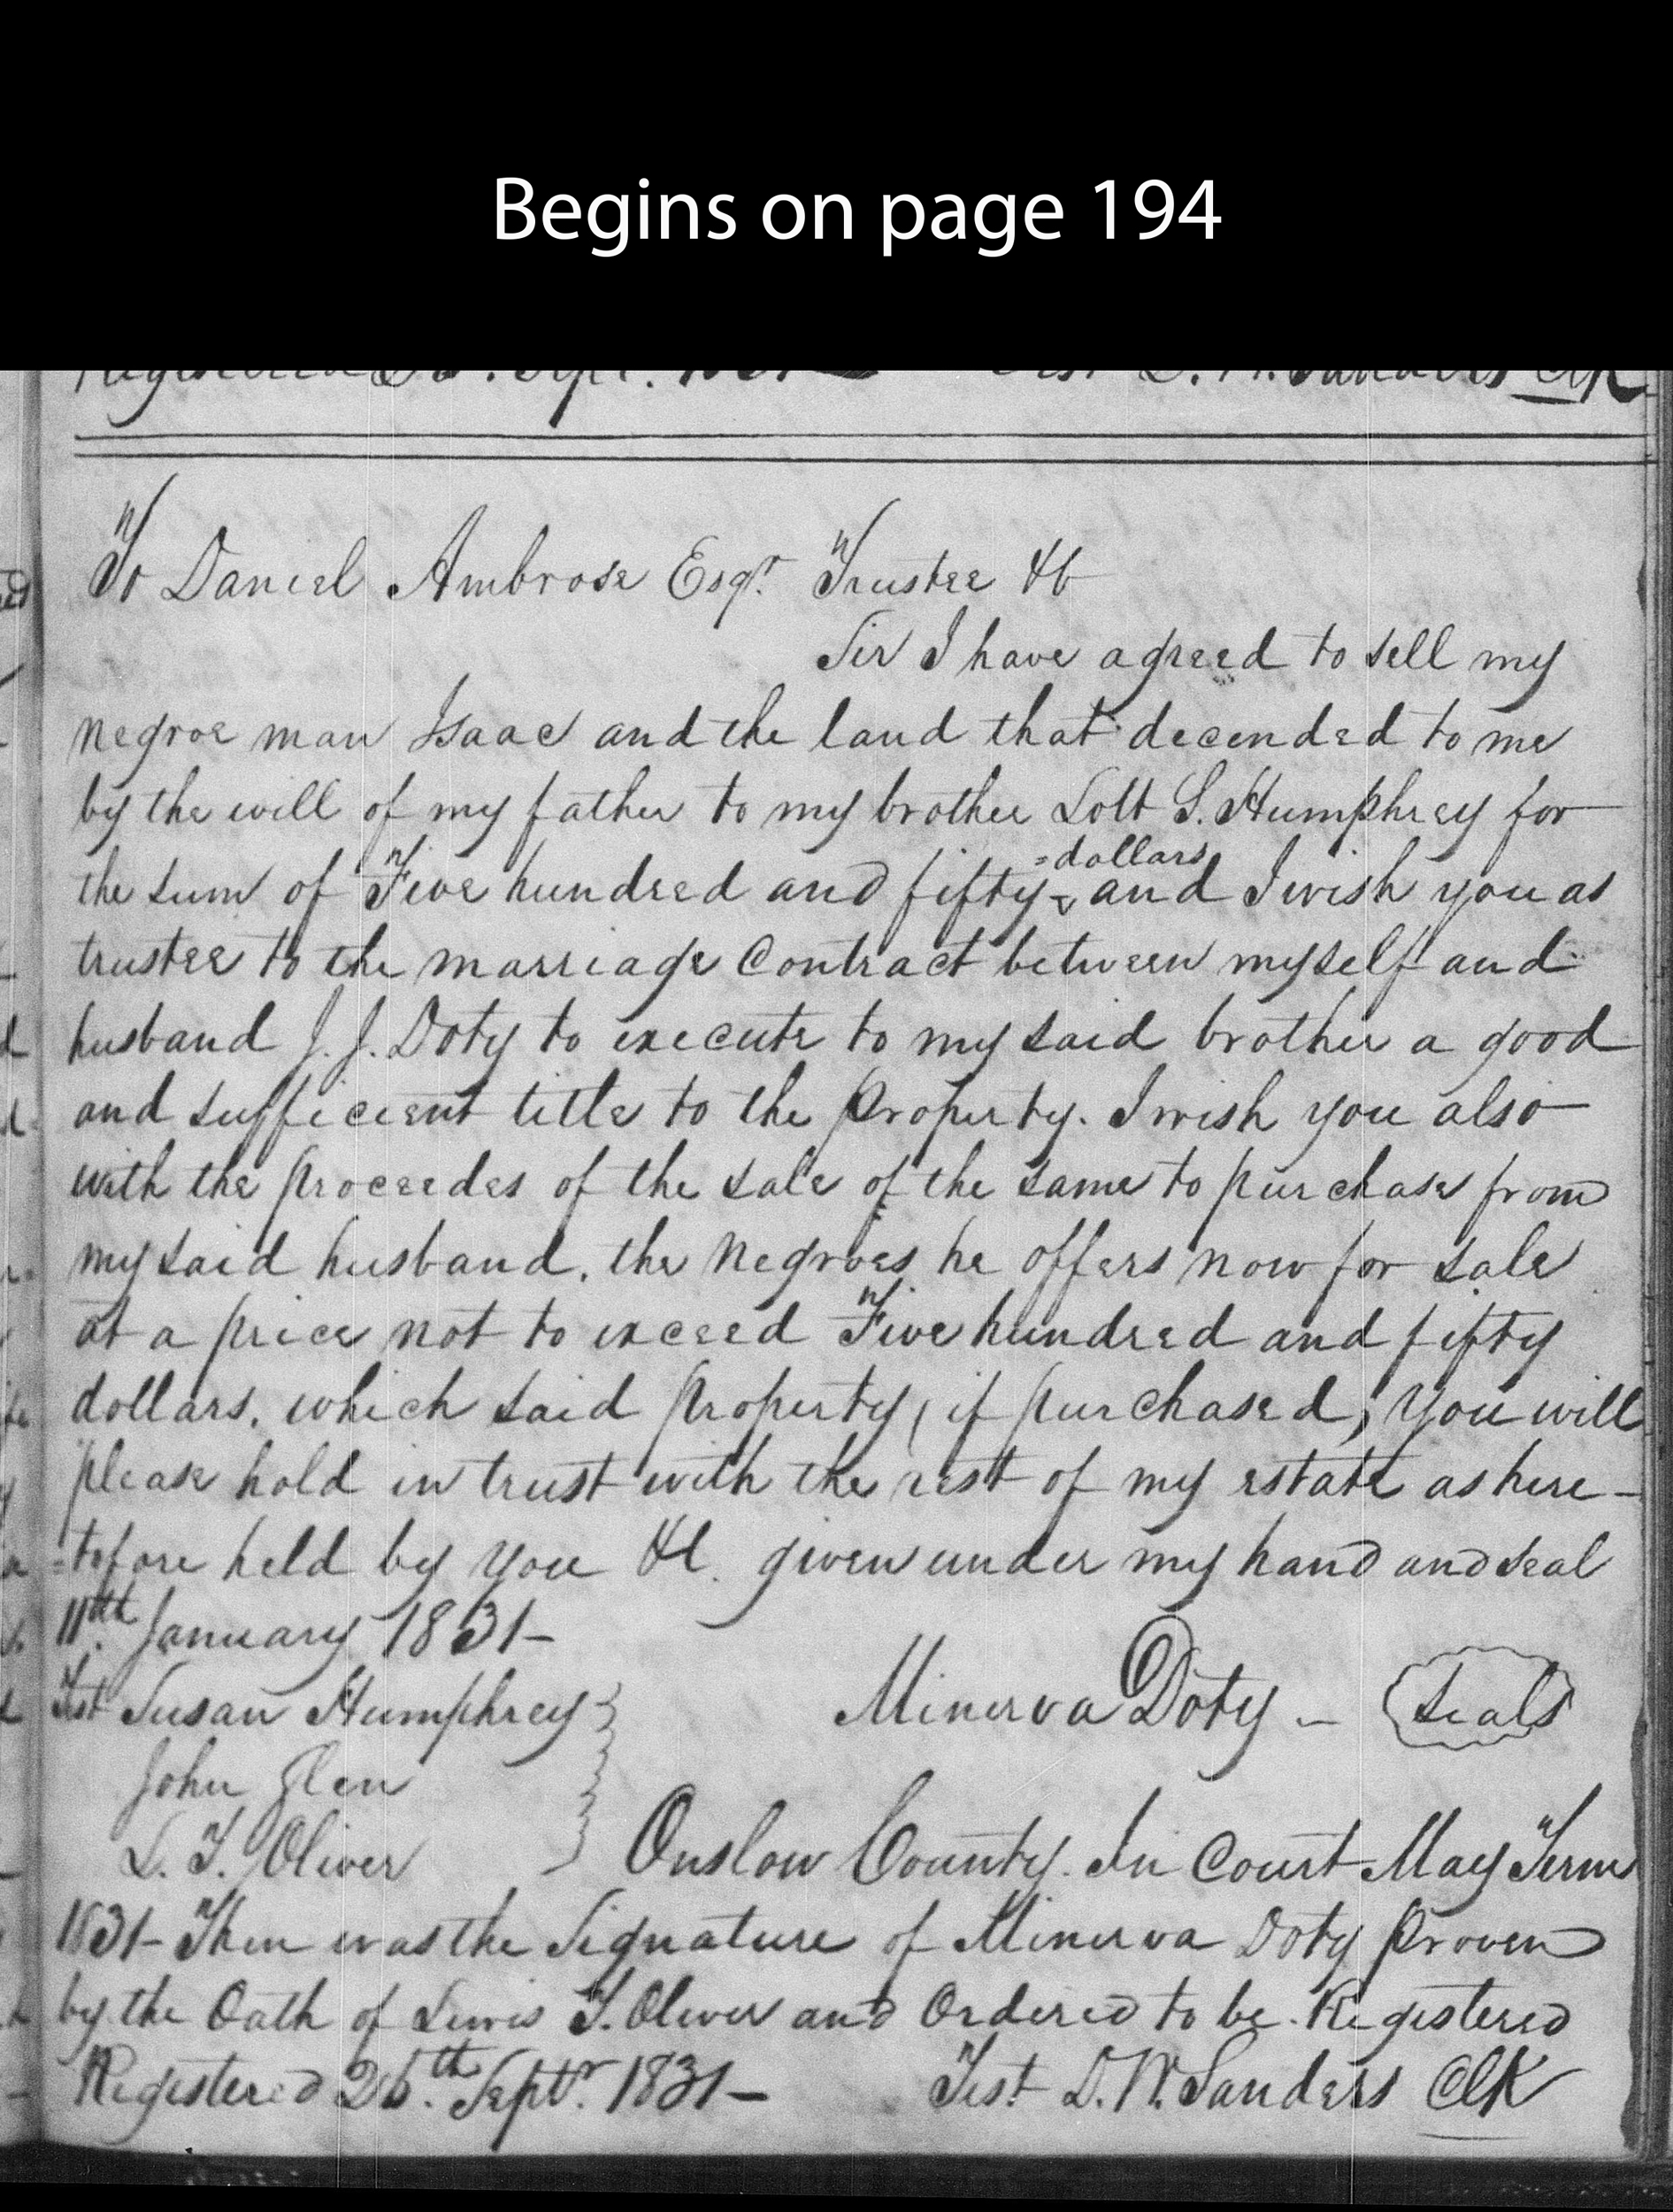 Begins on page 194
Registered 26. Sept. 1831 Test D. W. Sanders Clk
To Daniel Ambrose Esqr. Trustee &c
Sir I have agreed to sell my
negroe man Isaac and the land that decended to me
by the will of my father to my brother Lott S. Humphrey for
=dollars
the sum of Five hundred and fifty - and I wish you as
trustee to the marriage Contract between myself and
husband J. J. Doty to execute to my said brother a good
and sufficient title to the Property. I wish you also
with the proceedes of the sale of the same to purchase from
my said husband, the Negroes he offers now for sale
at a price not to exceed Five hundred and fifty
dollars, which said property, (if purchased,) You will
please hold in trust with the rest of my estate as here-
=tofore held by you &c. given under my hand and seal
11th. January 1831-
Test Susan Humphrey } Minerva Doty - Seals
John Glen
L. T. Oliver Onslow County. In Court May Term
1831- Then was the Signature of Minerva Doty Proven
by the Oath of Lewis T. Oliver and Ordered to be Registered
Registered 26.th Septr. 1831- Test D. W. Sanders Clk